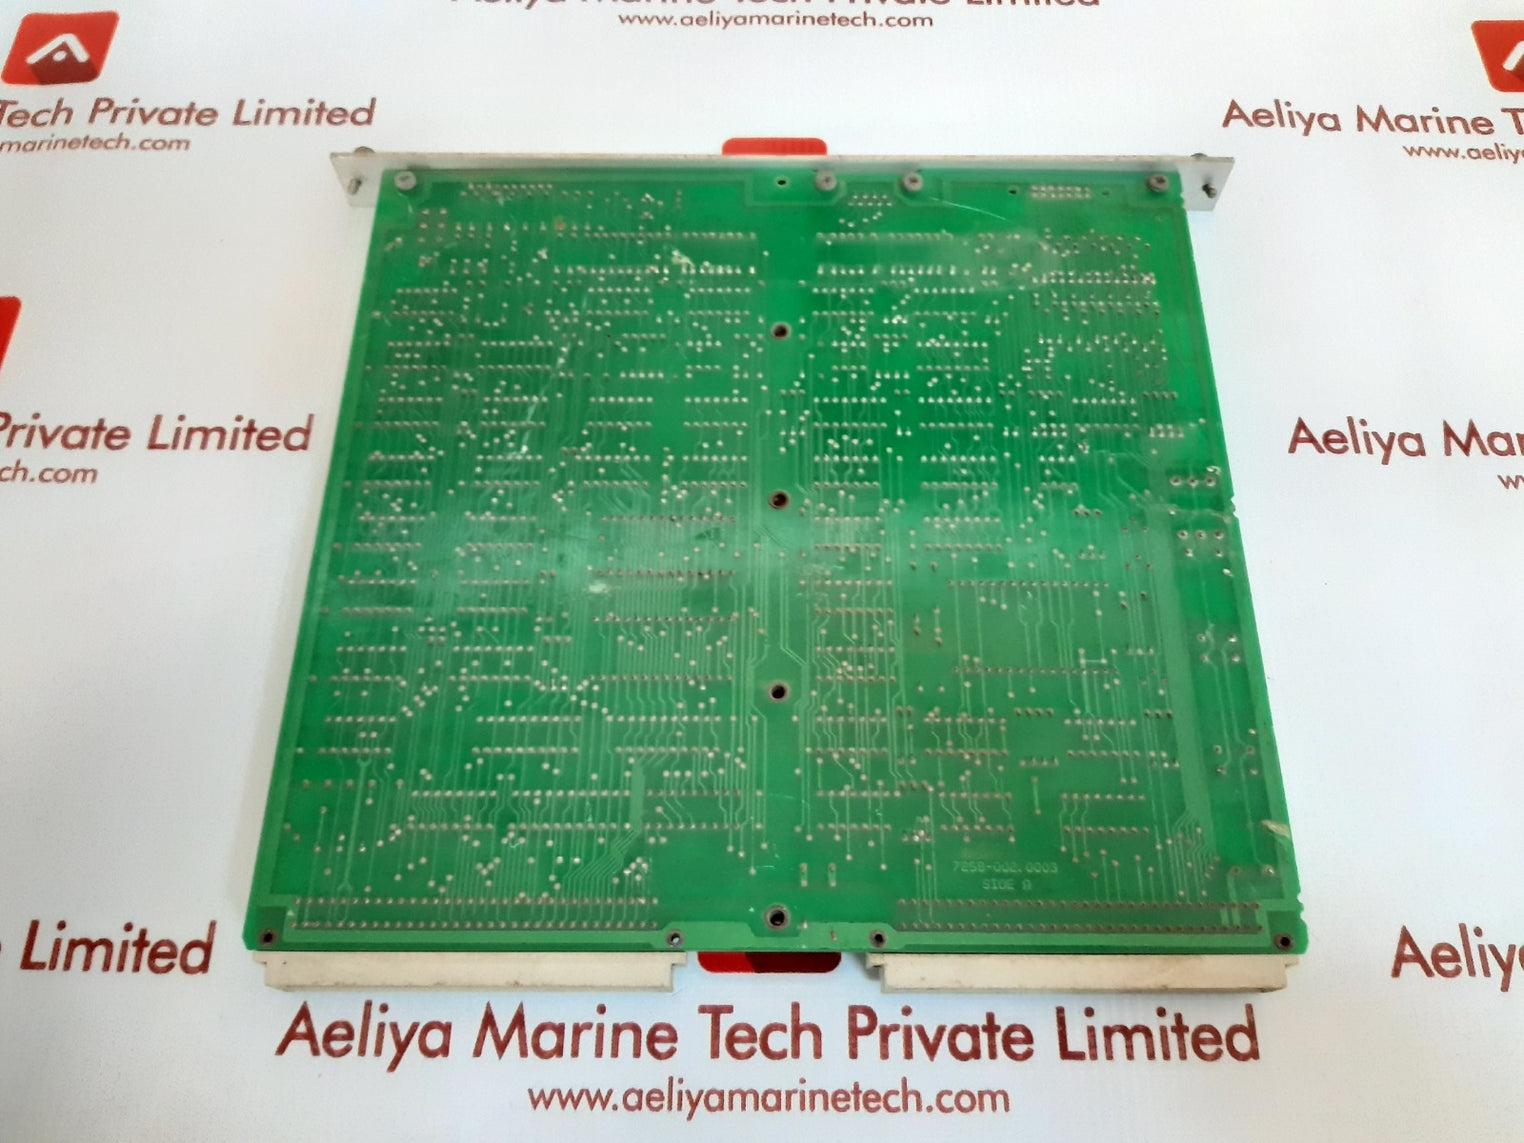 Aeliya Marine Tech Private Limited
www.aeliyamarinetech.com
Tech Private Limited
marinetech.com
Aeliya Marine T
www.aeliy
Private Limited
ch.com
Aeliya Mar
ww
7258-002.0003
SIDE A
Limited
Aeliy
Aeliya Marine Tech Private Limited
www.aeliyamarinetech.com